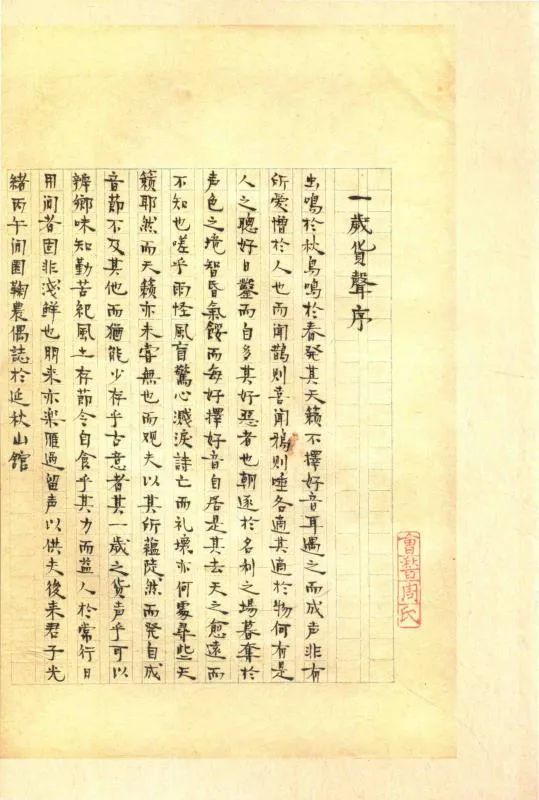 一歲貨聲序
虫鳴於秋鳥鳴於春發其天籟不擇好音耳遇之而成声非有
所爱憎於人也而闻鹊则喜闻鴉则唾各適其適於物何有是
人之聽好日鑿而自多其好惡者也朝逐於名利之場暮奪於
声色之境智昏氣餒而每好擇好音自居是其去天之愈遠而
不知也嗟乎雨怪風盲驚心溅淚詩亡而礼壞亦何處尋些天
籟耶然而天籟亦未嘗無也而观夫以其所蕴陡然而發自成
音節不及其他而猶能少存乎古意者其一歲之货声乎可以
辨鄉味知勤苦紀風土存節令自食乎其力而益人於常行日
用间者固非浅鲜也朋来亦樂雁過留声以供夫後来君子光
緒丙午闲園鞠農偶誌於延秋山館
會稽周氏